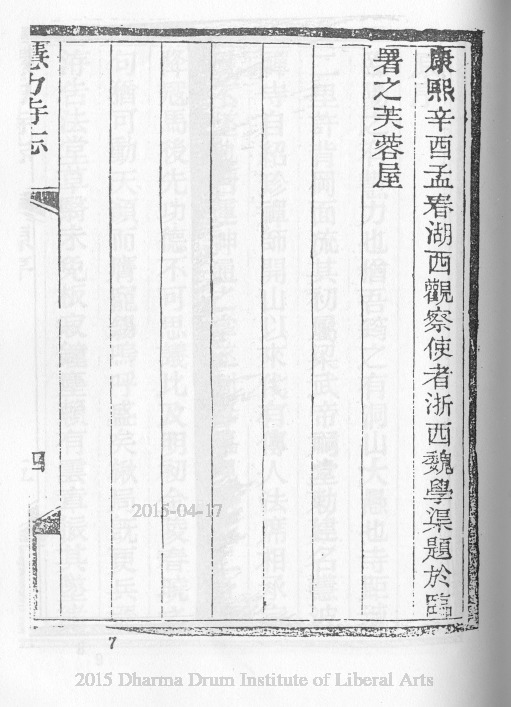 康熙辛酉孟春湖西觀察使者浙西魏學渠題於臨
署之芙蓉屋
慧力寺志
四
2015-04-17
7
2015 Dharma Drum Institute of Liberal Arts